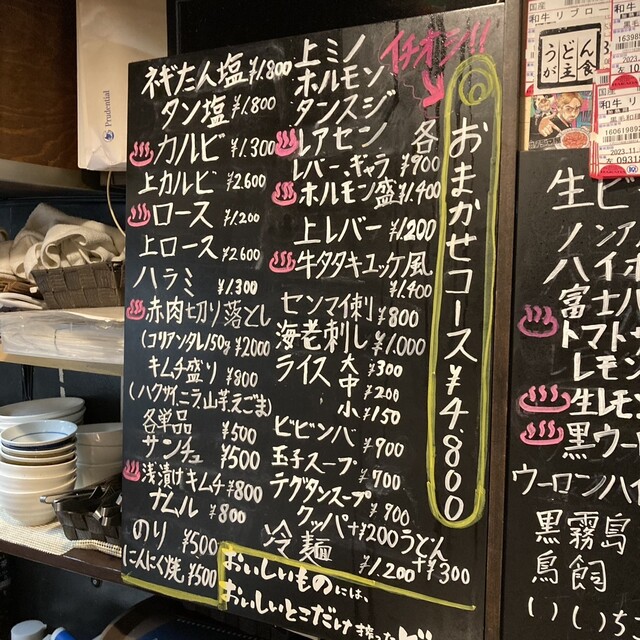 イチオシ!!
おまかせコース ¥4.800
ネギたん塩 ¥1.800
タン塩 ¥1.800
カルビ ¥1.300
上カルビ ¥2.600
ロース ¥1.200
上ロース ¥2600
ハラミ ¥1.300
赤肉切り落とし
(コリアンタレ/150g ¥2000
キムチ盛り ¥800
(ハクサイ、ニラ、山芋、えごま)
各単品 ¥500
サンチュ ¥500
浅漬けキムチ ¥800
ナムル ¥800
のり ¥500
にんにく焼 ¥500
上ミノ
ホルモン
タンスジ
レアセン 各
レバー、ギャラ ¥900
ホルモン盛 ¥1.400
上レバー ¥1.200
牛タタキユッケ風
¥1.400
センマイ刺 ¥800
海老刺し ¥1.000
ライス 大 ¥300
中 ¥200
小 ¥150
ビビンバ ¥900
玉子スープ ¥700
テグタンスープ ¥900
クッパ+¥200 うどん +¥300
冷麺 ¥1.200
おいしいものには、
おいしいとこだけ搾った
Prudential
うどん
が主食
国産
和牛リブロー
和牛リ
黒毛和
生ビ
ノンア
ハイボ
富士ハ
トマトサ
レモン
生レモ
黒ウー
ウーロンハイ
黒霧島
鳥飼
いいち